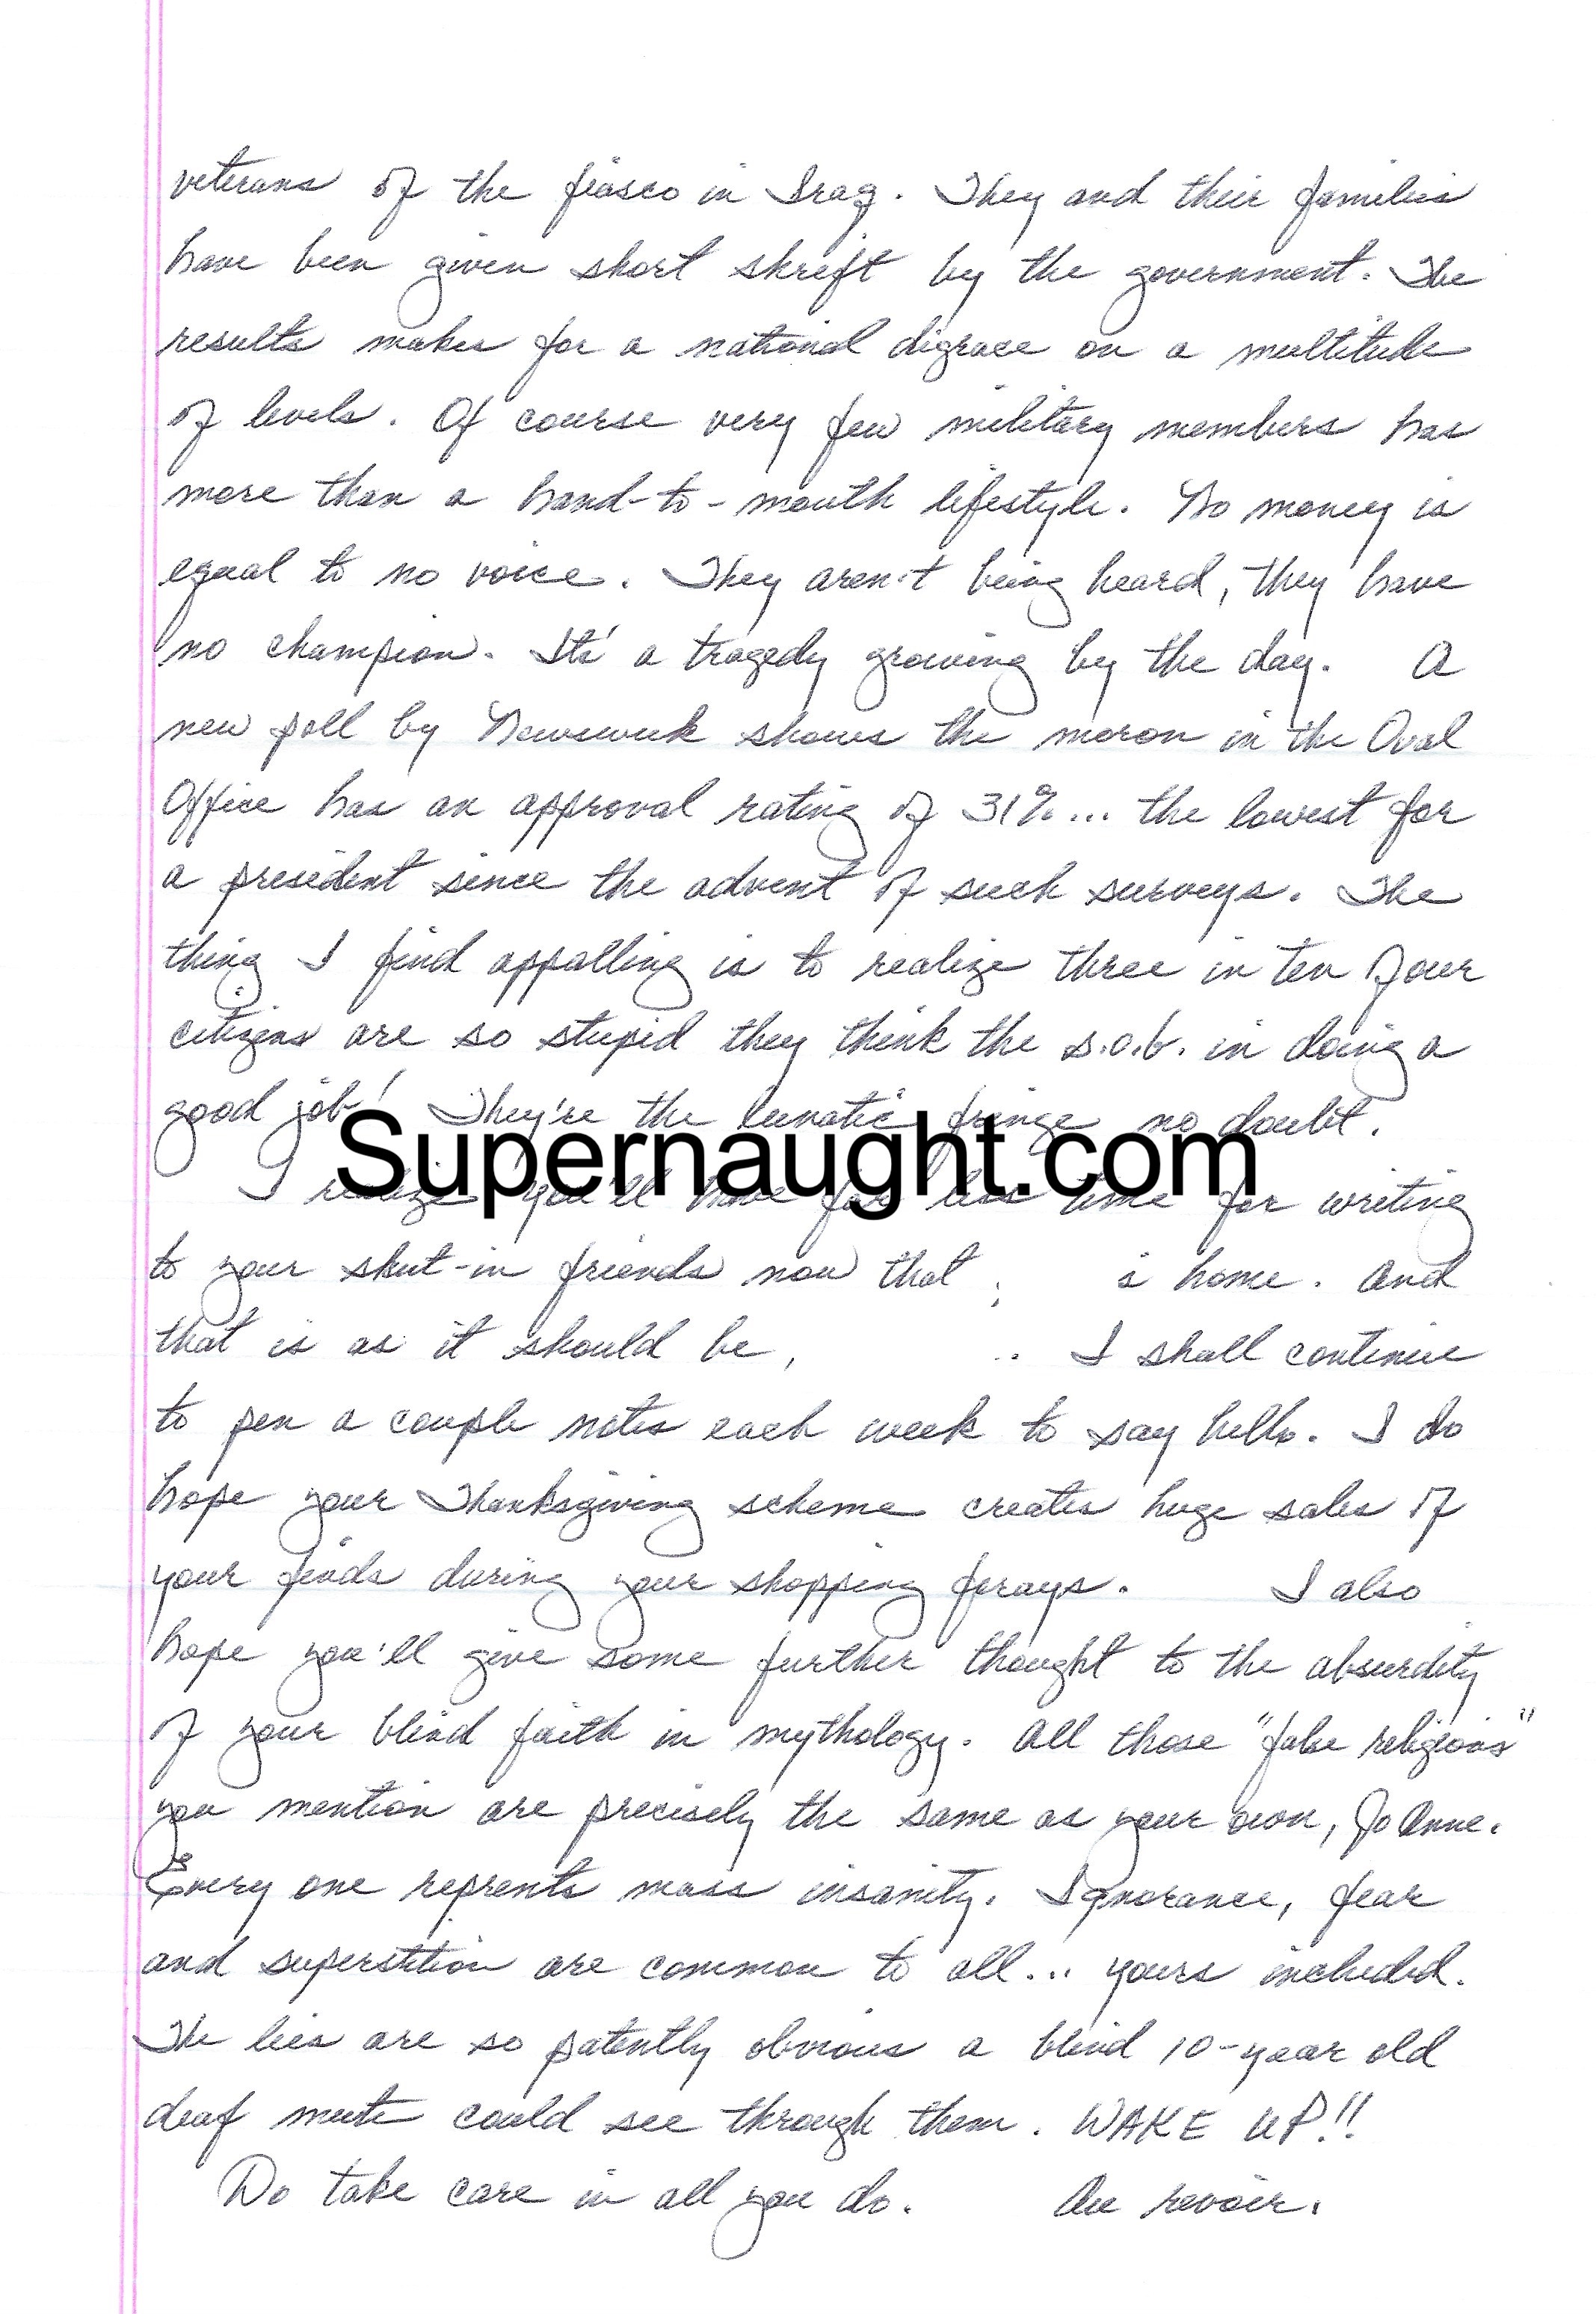 veterans of the fiasco in Iraq. They and their families
have been given short skrift by the government. The
results makes for a national digrace on a multitude
of levels. Of course very few military members has
more than a hand-to-mouth lifestyle. No money is
equal to no voice. They aren't being heard, they have
no champion. Its' a tragedy growing by the day. A
new poll by Newsweek shows the moron in the Oval
Office has an approval rating of 31%... the lowest for
a president since the advent of such surveys. The
thing I find appalling is to realize three in ten of our
citizens are so stupid they think the s.o.b. in doing a
good job! They're the lunatic fringe no doubt.
Supernaught.com
I realize you'll have far less time for writing
to your shut-in friends now that is home. And
that is as it should be, I shall continue
to pen a couple notes each week to say hello. I do
hope your Thanksgiving scheme creates huge sales of
your finds during your shopping forays. I also
hope you'll give some further thought to the absurdity
of your blind faith in mythology. All those "false religions"
you mention are precisely the same as your own, Jo Anne.
Every one reprents mass insanity. Ignorance, fear
and superstition are common to all... yours included.
The lies are so patently obvious a blind 10-year old
deaf mute could see through them. WAKE UP!!
Do take care in all you do. Au revoir.